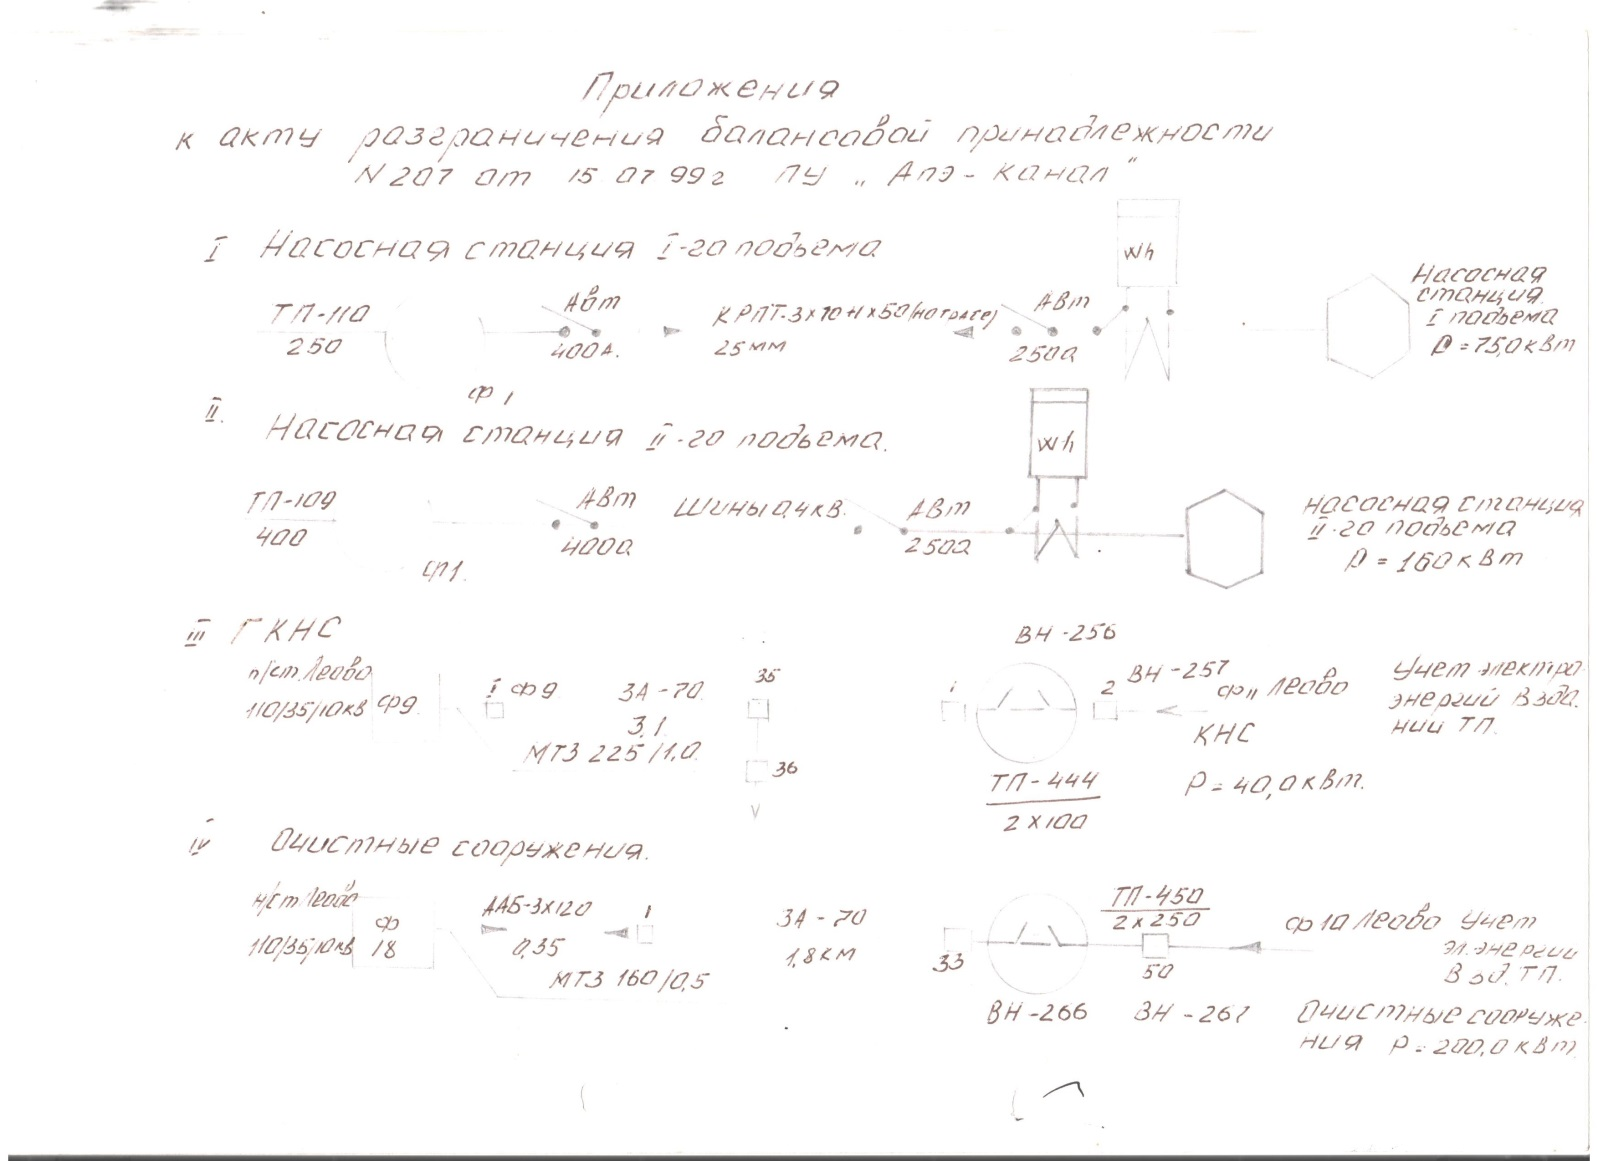 Приложения
к акту разграничения балансовой принадлежности
N 207 от 15 07 99 г ПУ „Апэ-канал"
I Насосная станция I-го подьема
Wh
ТП-110
250
АВт
400А.
КРПТ-3х70+1х50
25мм
АВт
250а
Насосная
станция
I подьема
Р=75,0кВт
ф1
II.
Насосная станция II-го подьема.
Wh
ТП-109
400
АВт
400а
Шины 0,4кВ.
АВт
250а
насосная станция
II-го подьема
Р=160кВт
ф1.
III ГКНС
п/ст. Леово
110/35/10кВ
ф9.
1 ф9
ЗА-70.
3,1
МТЗ 225/1,0.
35
36
ВН-256
1
2
ВН-257
ф11 Леово
КНС
ТП-444
2х100
Р=40,0кВт.
Учет электро-
энергий в зда.
нии ТП.
IV Очистные сооружения.
п/ст Леово
110/35/10кВ
ф
18
ААБ-3х120
0,35
1
МТЗ 160/0,5
ЗА-70
1,8км
33
ТП-450
2х250
50
ВН-266
ВН-267
ф10 Леово Учет
эл.энергии
В зд. ТП.
Очистные сооруже-
ния Р=200,0кВт.